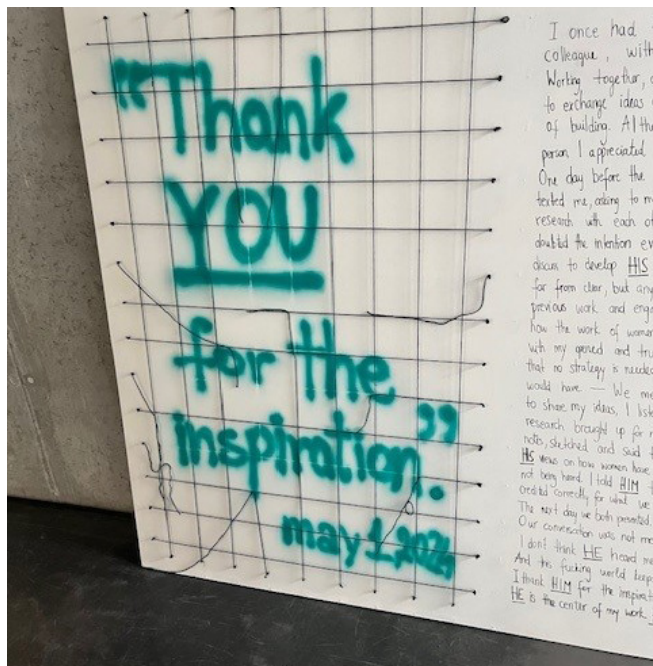 "Thank
YOU
for the
inspiration."
may 1, 2024
I once had
colleague, with
Working together,
to exchange ideas
of building. All the
person I appreciated
One day before the
texted me, asking to
research with each of
doubted the intention
discuss to develop HIS
far from clear, but any
previous work and
how the work of women
with my opened and
that no strategy is needed
would have — We
to share my ideas, I
research brought up for
notes, sketched and said
HIS views on how women have
not being heard. I told HIM
credited correctly for what we
The next day we both presented.
Our conversation was not
I don't think HE heard me
And this fucking world keeps
I thank HIM for the
HE is the center of my work.